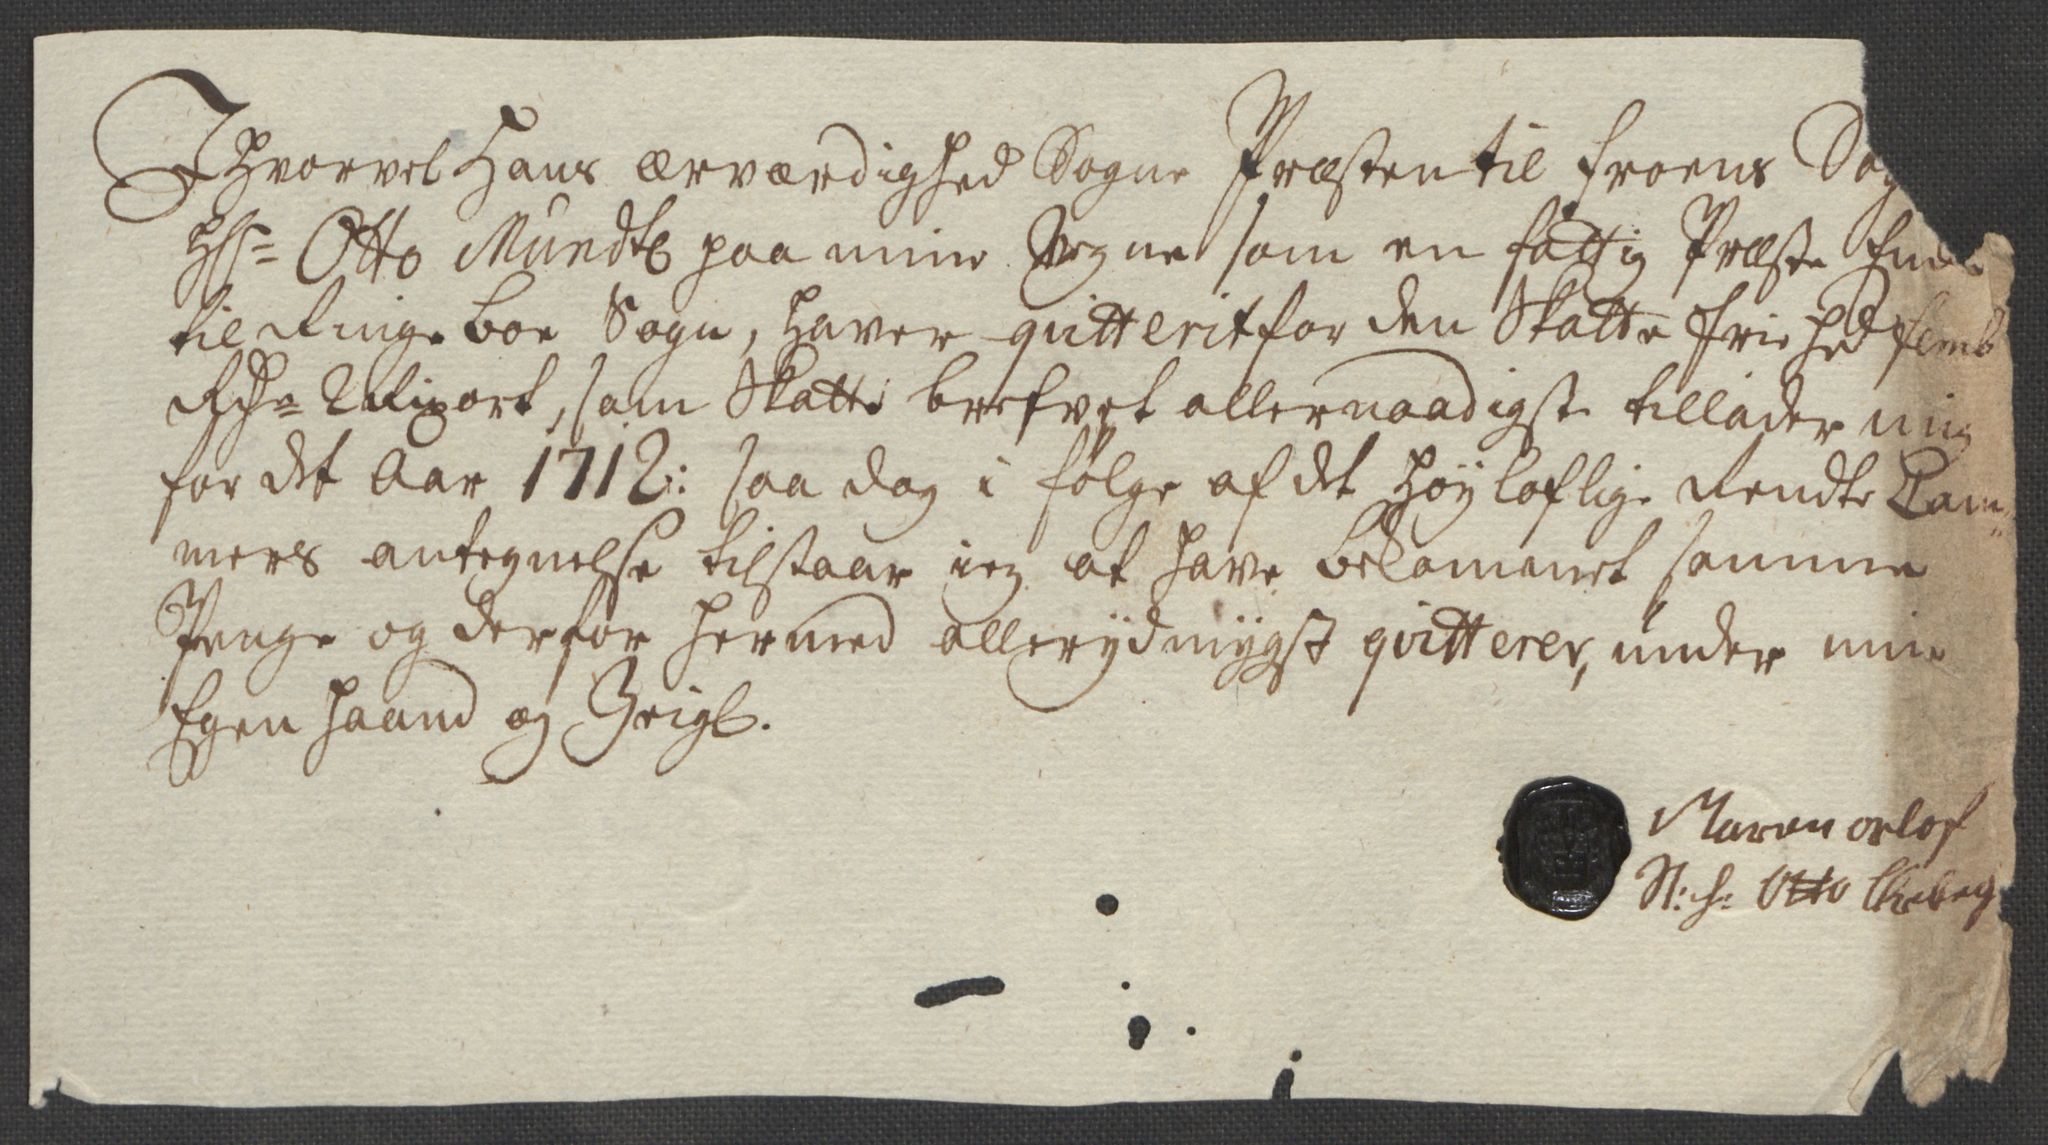 Ihvorvel Hans ærværdighed Sogne Præsten til Froens Sog
Hr= Otto Mundts paa mine Vegne som en fattig Præste Encke
til Ringeboe Sogn, haver qvitterit for den Skatte friehed femb
Rdr= 2 Rixort, som Skatte brefvet allernaadigste tillader mig
for det Aar 1712: saa dog i følge af det høyloflige Rendte Cam-
mers antegnelse tilstaar ieg at have bekommet samme
Penge og derfor hermed allerydmygst qvitterer, under min
Egen haand og Zeigl.
Maren orlof
Sl: h: Otto